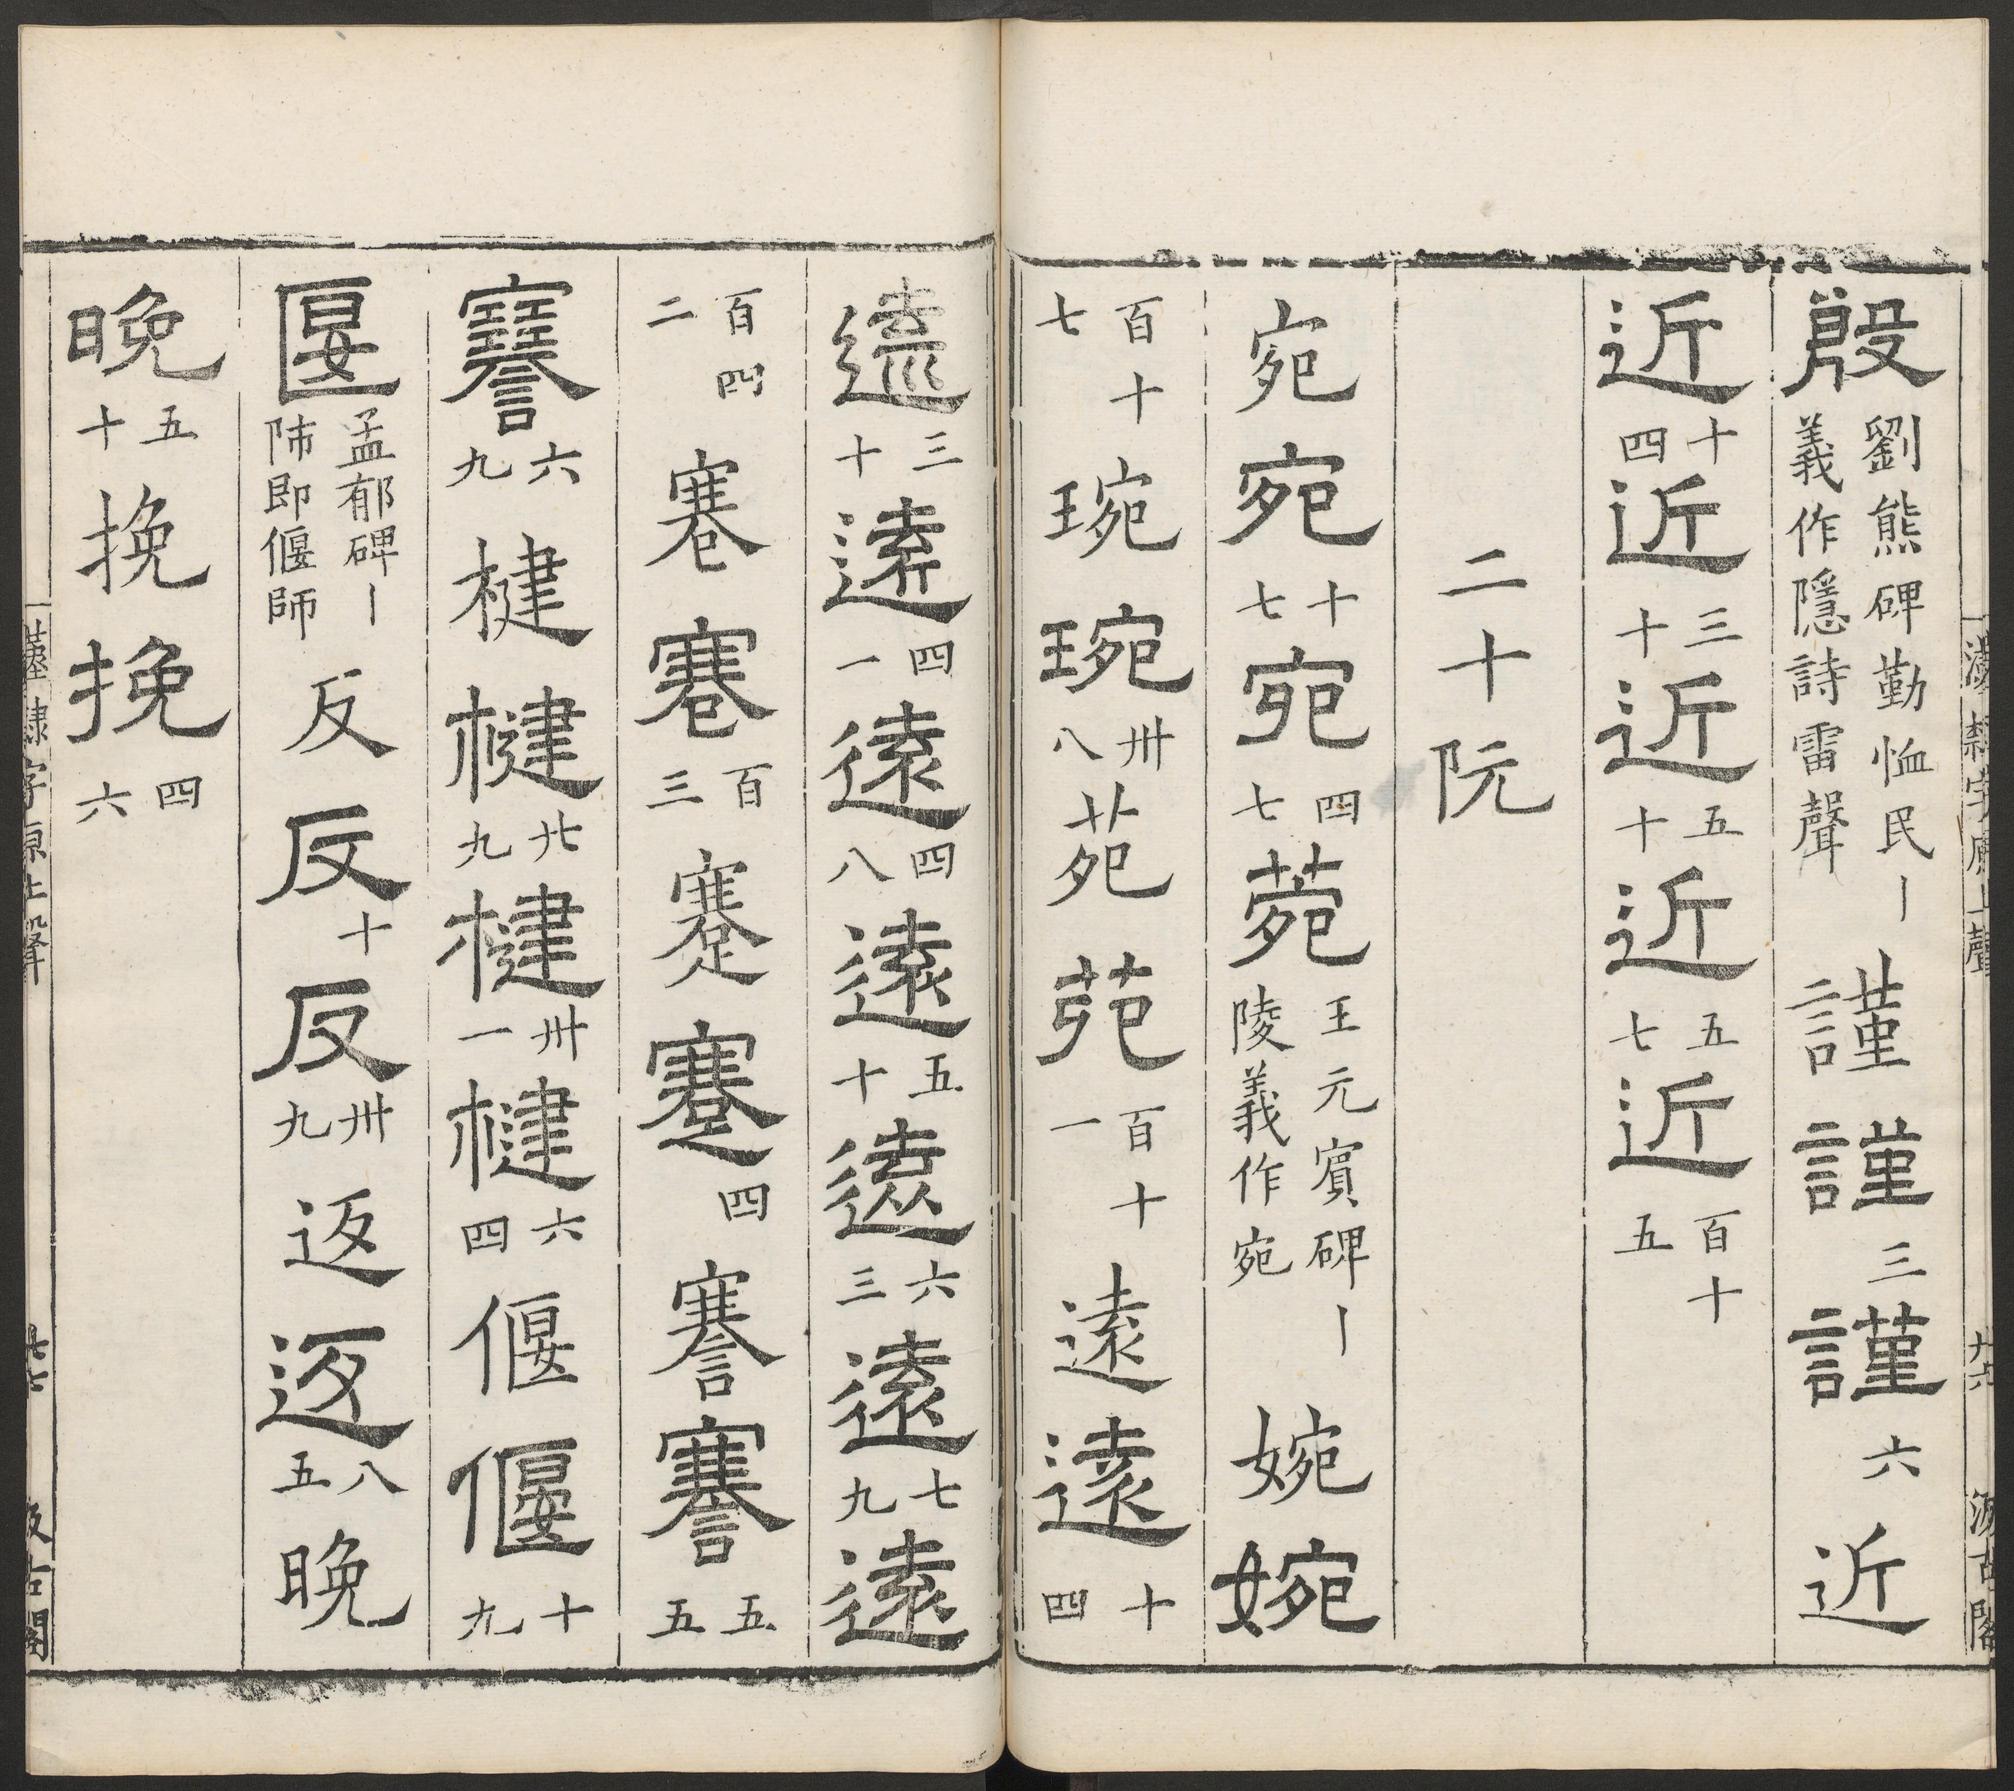 殷 劉熊碑勤恤民丨 義作隱詩雷聲 謹 謹 三 謹 六 近
近 十四 近 三十 近 五十 近 五七 近 百十五
二十阮
宛 宛 十七 宛 四七 菀 王元賔碑丨 陵義作宛 婉 婉
百十七 琬 琬 卅八 苑 苑 百十一 遠 遠 十四
遠 三十 遠 四一 遠 四八 遠 五十 遠 六三 遠 七九 遠
百四二 寋 寋 百三 蹇 蹇 四 謇 謇 五五
謇 六九 楗 楗 廿九 楗 卅一 楗 六四 偃 偃 十九
匽 孟郁碑丨 陃即偃師 反 反 十 反 卅九 返 返 八五 晚
晚 五十 挽 挽 四六
漢隸字原上聲 廿六 汲古閣
漢隸字原上聲 廿七 汲古閣